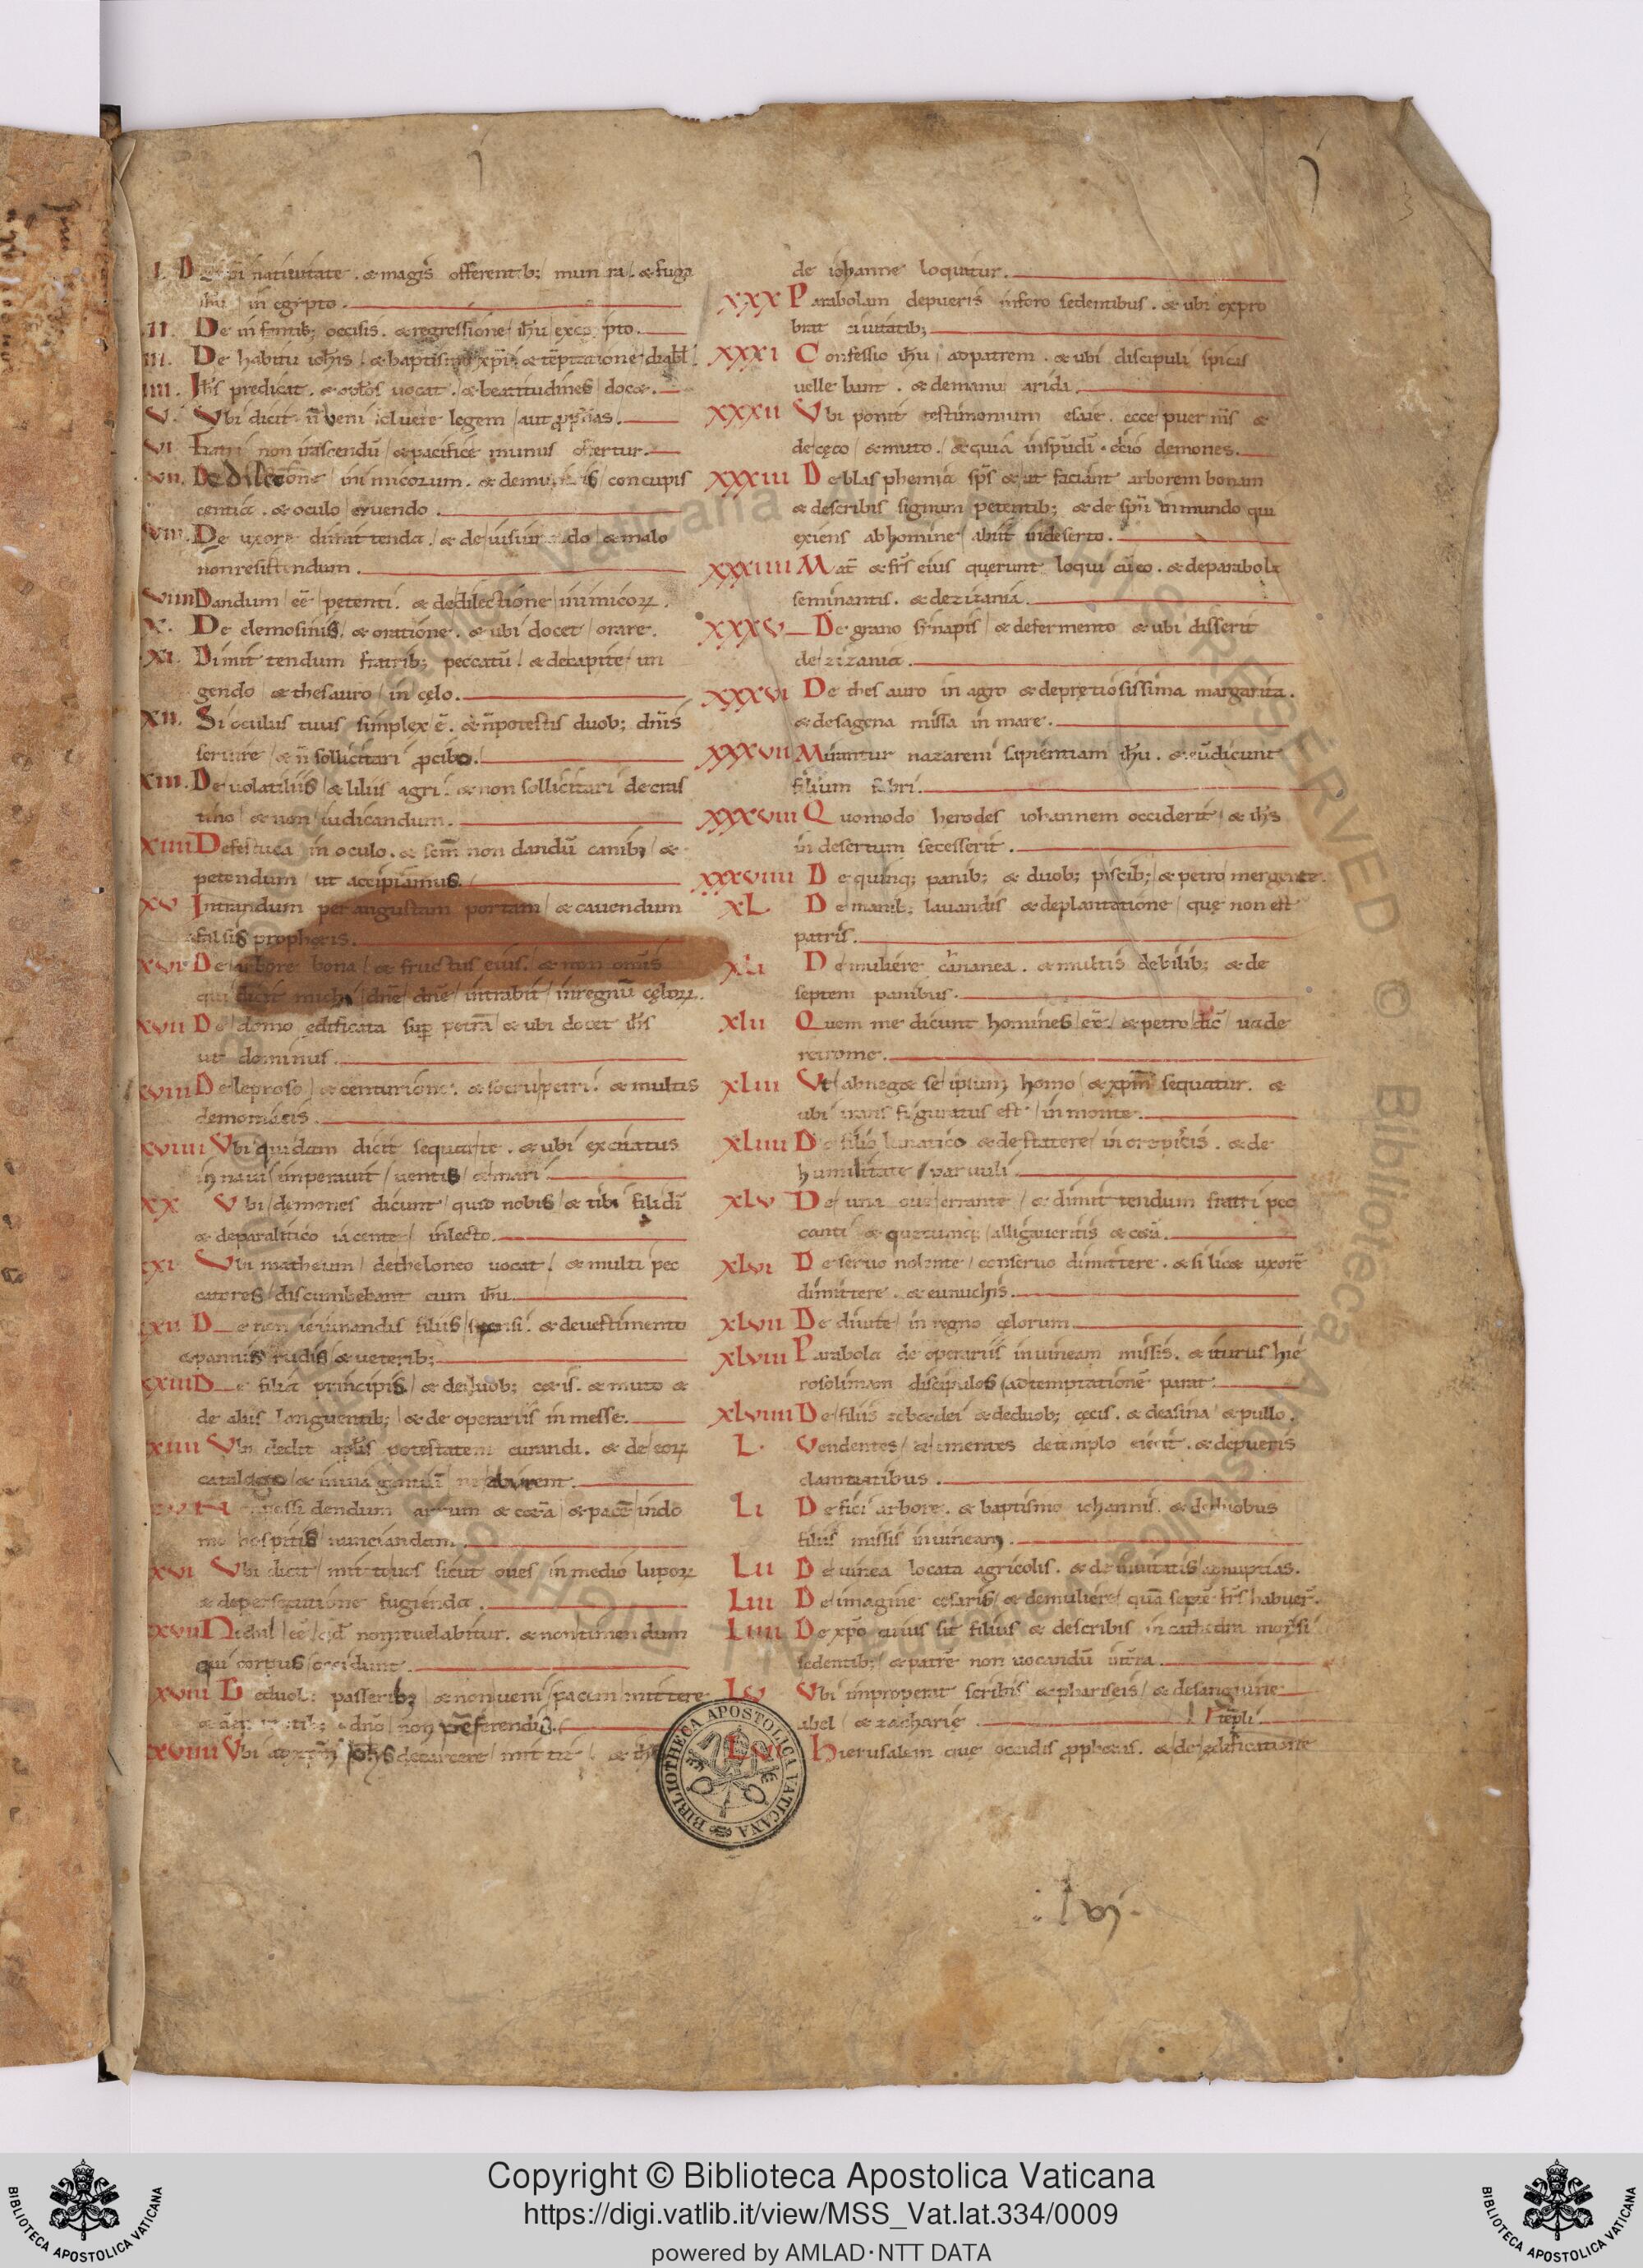 I. D nativitate . & magis offerentib; & fuga
ihu in egipto .
II. De infantib; occisis . & regressione ihu ex pto .
III. De habitu iohis . & baptismo xpi . & teptatione diabl
IIII. Ihs predicat . & aplos uocat . & beatitudines doc& .
V. Vbi dicit n̄ veni soluere legem aut pphias .
VI. Fratri non irascendū & pacifice munus offertur .
VII. De dilectione inimicorum . & de concupis
centia . & oculo eruendo .
VIII. De uxore dimittenda . & de & malo
non resistendum .
VIIII Dandum eē petenti . & de dilectione inimicoꝝ .
X. De elemosinis & oratione . & ubi docet orare .
XI. Dimittendum fratrib; peccatū . & de capite un
gendo & thesauro in celo .
XII. Si oculus tuus simplex ē . & n̄ potestis duob; dnis
seruire & n̄ sollicitari p cibo .
XIII. De uolatiliis & liliis agri . & non sollicitari de cras
tino & non iudicandum .
XIIII De festuca in oculo . & scm non dandū canib; &
petendum ut accipiamus .
XV Intrandum per angustam portam & cauendum
a falsis prophetis .
XVI De arbore bona & fructus eius . & non omis
qui dicit michi dne dne intrabit in regnū celoꝝ .
XVII De domo edificata sup petrā & ubi docet ihs
ut dominus .
XVIII De leproso & centurione . & socru petri . & multis
demoniacis .
XVIIII Vbi quidam dicit sequar te . & ubi excitatus
in naui imperauit uentis & mari
XX Vbi demones dicunt quid nobis & tibi fili di
& de paralitico iacente in lecto .
XXI Vbi matheum de theloneo uocat . & multi pec
catores discumbebant cum ihu
XXII De non ieiunandis filiis sponsi . & de uestimento
& pannis rudis & ueterib;
XXIII De filia principis & de duob; cecis . & muto &
de aliis languentib; & de operariis in messe .
XXIIII Vbi dedit aplis potestatem curandi . & de eoꝝ
catalogo & in uia gentiū ne abirent
possidendum aurum & cetera & pacē in do
mo hospitis nunciandam
XXVI Vbi dicit mitto uos sicut oues in medio lupoꝝ
& de persecutione fugienda .
XXVII Nichil eē qd non reuelabitur . & non timendum
qui corpus occidunt .
XXVIII De duob; passerib; & non ueni pacem mittere
dno non pferendis
XXVIIII Vbi ad xpm iohs de carcere mittit . &
de iohanne loquitur .
XXX Parabolam de pueris in foro sedentibus . & ubi expro
brat ciuitatib;
XXXI Confessio ihu ad patrem . & ubi discipuli spicas
uellebant . & de manu arida .
XXXII Vbi ponit testimonium esaie . ecce puer ms &
de ceco & muto . & quia in spu di eicio demones .
XXXIII De blasphemia sps & ut faciant arborem bonam
& de scribis signum petentib; & de spu inmundo qui
exiens ab homine abiit in deserto .
XXXIIII Mat & frs eius querunt loqui cū eo . & de parabola
seminantis . & de zizania .
XXXV De grano sinapis & de fermento & ubi disserit
de zizania .
XXXVI De thesauro in agro & de pretiosissima margarita .
& de sagena missa in mare .
XXXVII Mirantur nazareni sapientiam ihu . & eū dicunt
filium fabri .
XXXVIII Quomodo herodes iohannem occiderit & ihs
in desertum secesserit .
XXXVIIII De quinq; panib; & duob; piscib; & petro mergente .
XL De manib; lauandis & de plantatione que non est
patris .
XLI De muliere cananea . & multis debilib; & de
septem panibus .
XLII Quem me dicunt homines eē & petro dic̄ uade
retrome .
XLIII Vt abneg& se ipsum homo & xpm sequatur . &
ubi transfiguratus est in monte .
XLIIII De filio lunatico & de statere in ore piscis . & de
humilitate paruuli
XLV De una oue errante & dimittendum fratri pec
canti & quecumq; alligaueritis & cetā .
XLVI De seruo nolente conseruo dimittere . & si lic& uxorē
dimittere . & eunuchis .
XLVII De diuite in regno celorum
XLVIII Parabola de operariis in uineam missis . & iturus hie
rosolimam discipulos ad temptationē parat
XLVIIII De filiis zebedei & de duob; cecis . & de asina & pullo .
L. Vendentes & ementes de templo eiecit . & de pueris
clamantibus .
LI De fici arbore . & baptismo iohannis . & de duobus
filiis missis in uineam .
LII De uinea locata agricolis . & de inuitatis ad nuptias .
LIII De imagine cesaris & de muliere quā septē frs habuer .
LIIII De xpo cuius sit filius & de scribis in cathedra moysi
sedentib; & patre non uocandū in trā .
LV Vbi improperat scribis & phariseis & de sanguine
abel & zacharie tēpli
LVI Hierusalem que occidis pphetas . & de edificatione
BIBLIOTHECA APOSTOLICA VATICANA
: lvj .
© Biblioteca Apostolica Vaticana ALL RIGHTS RESERVED
Copyright © Biblioteca Apostolica Vaticana
https://digi.vatlib.it/view/MSS_Vat.lat.334/0009
powered by AMLAD·NTT DATA
BIBLIOTECA APOSTOLICA VATICANA
BIBLIOTECA APOSTOLICA VATICANA